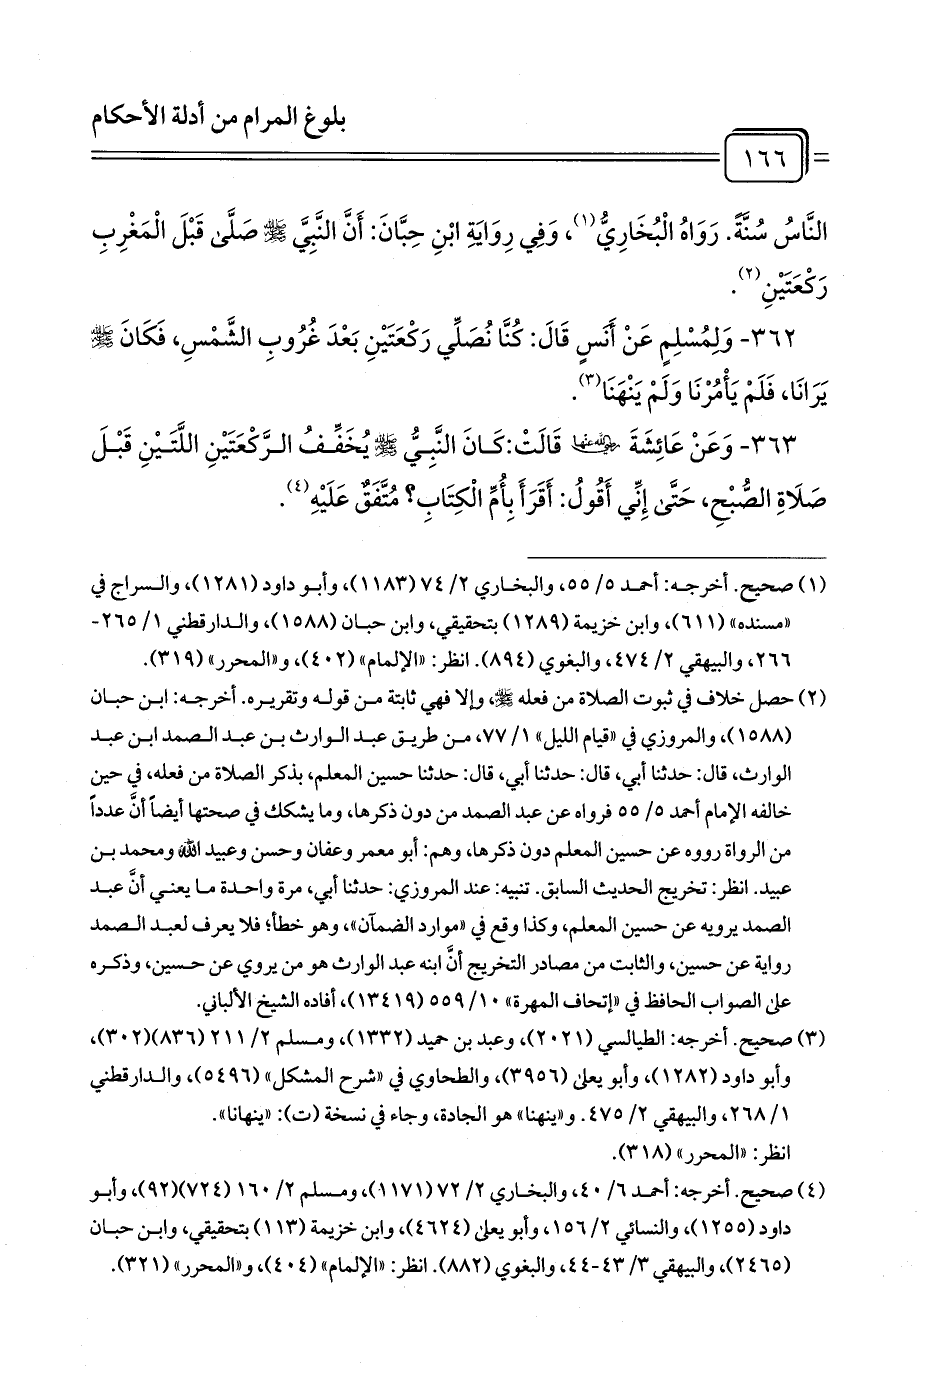 بلوغ المرام من أدلة الأحكام
١٦٦
النَّاسُ سُنَّةً. رَوَاهُ الْبُخَارِيُّ(١)، وَفِي رِوَايَةِ ابْنِ حِبَّانَ: أَنَّ النَّبِيَّ ﷺ صَلَّى قَبْلَ الْمَغْرِبِ
رَكْعَتَيْنِ(٢).
٣٦٢- وَلِمُسْلِمٍ عَنْ أَنَسٍ قَالَ: كُنَّا نُصَلِّي رَكْعَتَيْنِ بَعْدَ غُرُوبِ الشَّمْسِ، فَكَانَ ﷺ
يَرَانَا، فَلَمْ يَأْمُرْنَا وَلَمْ يَنْهَنَا(٣).
٣٦٣- وَعَنْ عَائِشَةَ رضي الله عنها قَالَتْ: كَانَ النَّبِيُّ ﷺ يُخَفِّفُ الرَّكْعَتَيْنِ اللَّتَيْنِ قَبْلَ
صَلَاةِ الصُّبْحِ، حَتَّى إِنِّي أَقُولُ: أَقَرَأَ بِأُمِّ الْكِتَابِ؟ مُتَّفَقٌ عَلَيْهِ(٤).
(١) صحيح. أخرجه: أحمد ٥/ ٥٥، والبخاري ٢/ ٧٤ (١١٨٣)، وأبو داود (١٢٨١)، والسراج في
«مسنده» (٦١١)، وابن خزيمة (١٢٨٩) بتحقيقي، وابن حبان (١٥٨٨)، والدارقطني ١/ ٢٦٥-
٢٦٦، والبيهقي ٢/ ٤٧٤، والبغوي (٨٩٤). انظر: «الإلمام» (٤٠٢)، و«المحرر» (٣١٩).
(٢) حصل خلاف في ثبوت الصلاة من فعله ﷺ، وإلا فهي ثابتة من قوله وتقريره. أخرجه: ابن حبان
(١٥٨٨)، والمروزي في «قيام الليل» ١/ ٧٧، من طريق عبد الوارث بن عبد الصمد ابن عبد
الوارث، قال: حدثنا أبي، قال: حدثنا أبي، قال: حدثنا حسين المعلم، بذكر الصلاة من فعله، في حين
خالفه الإمام أحمد ٥/ ٥٥ فرواه عن عبد الصمد من دون ذكرها، وما يشكك في صحتها أيضاً أنَّ عدداً
من الرواة رووه عن حسين المعلم دون ذكرها، وهم: أبو معمر وعفان وحسن وعبيد الله ومحمد بن
عبيد. انظر: تخريج الحديث السابق. تنبيه: عند المروزي: حدثنا أبي، مرة واحدة ما يعني أنَّ عبد
الصمد يرويه عن حسين المعلم، وكذا وقع في «موارد الضمآن»، وهو خطأ؛ فلا يعرف لعبد الصمد
رواية عن حسين، والثابت من مصادر التخريج أنَّ ابنه عبد الوارث هو من يروي عن حسين، وذكره
على الصواب الحافظ في «إتحاف المهرة» ١٠/ ٥٥٩ (١٣٤١٩)، أفاده الشيخ الألباني.
(٣) صحيح. أخرجه: الطيالسي (٢٠٢١)، وعبد بن حميد (١٣٣٢)، ومسلم ٢/ ٢١١ (٨٣٦)(٣٠٢)،
وأبو داود (١٢٨٢)، وأبو يعلى (٣٩٥٦)، والطحاوي في «شرح المشكل» (٥٤٩٦)، والدارقطني
١/ ٢٦٨، والبيهقي ٢/ ٤٧٥. و«ينهنا» هو الجادة، وجاء في نسخة (ت): «ينهانا».
انظر: «المحرر» (٣١٨).
(٤) صحيح. أخرجه: أحمد ٦/ ٤٠، والبخاري ٢/ ٧٢ (١١٧١)، ومسلم ٢/ ١٦٠ (٧٢٤)(٩٢)، وأبو
داود (١٢٥٥)، والنسائي ٢/ ١٥٦، وأبو يعلى (٤٦٢٤)، وابن خزيمة (١١٣) بتحقيقي، وابن حبان
(٢٤٦٥)، والبيهقي ٣/ ٤٣-٤٤، والبغوي (٨٨٢). انظر: «الإلمام» (٤٠٤)، و«المحرر» (٣٢١).